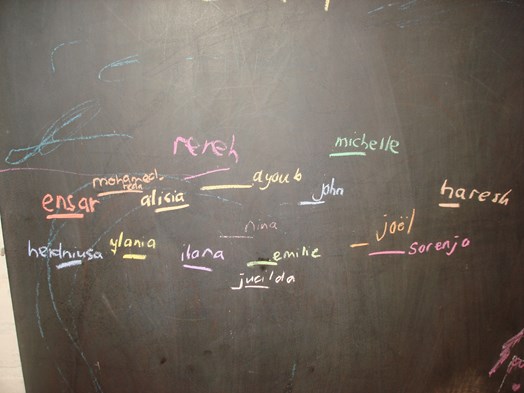 michelle
rereh
mohamed
ayoub
john
haresh
ensar
alisia
nina
joël
heidniusa
ylania
ilana
emilie
sorenjo
jucilda